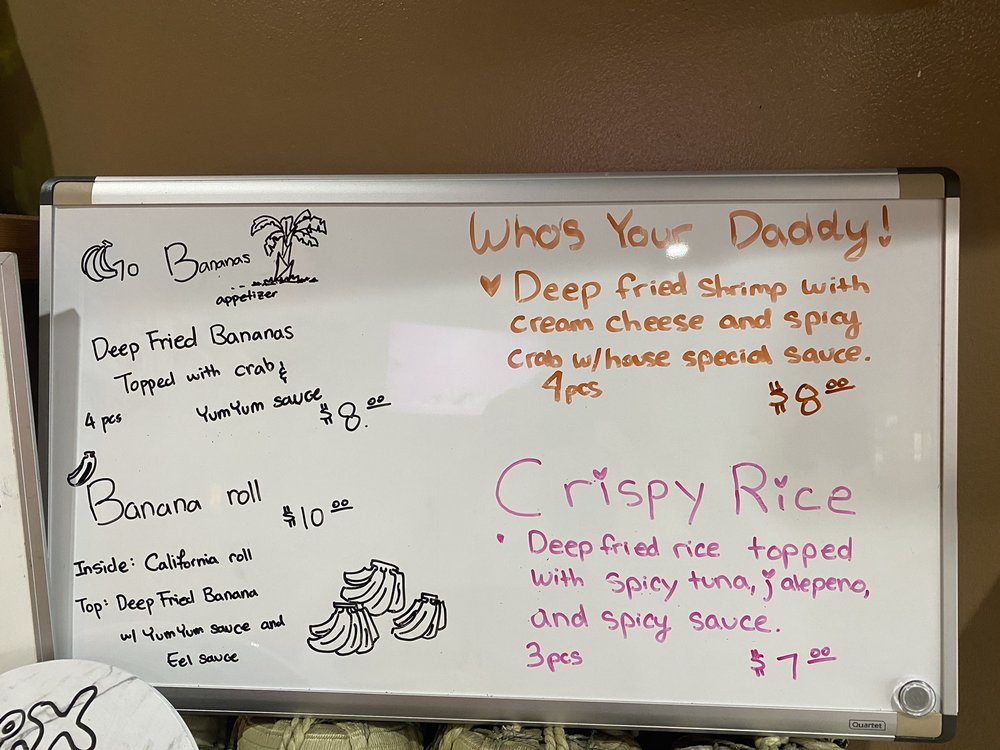 Go Bananas
appetizer
Deep Fried Bananas
Topped with crab &
4 pcs YumYum sauce $8.00
Banana roll $10 00
Inside: California roll
Top: Deep Fried Banana
w/ YumYum sauce and
Eel sauce
Who's Your Daddy!
Deep fried shrimp with
cream cheese and spicy
crab w/house special sauce.
4pcs $8 00
Crispy Rice
• Deep fried rice topped
with spicy tuna, jalepeno,
and spicy sauce.
3pcs $7 00
Quartet